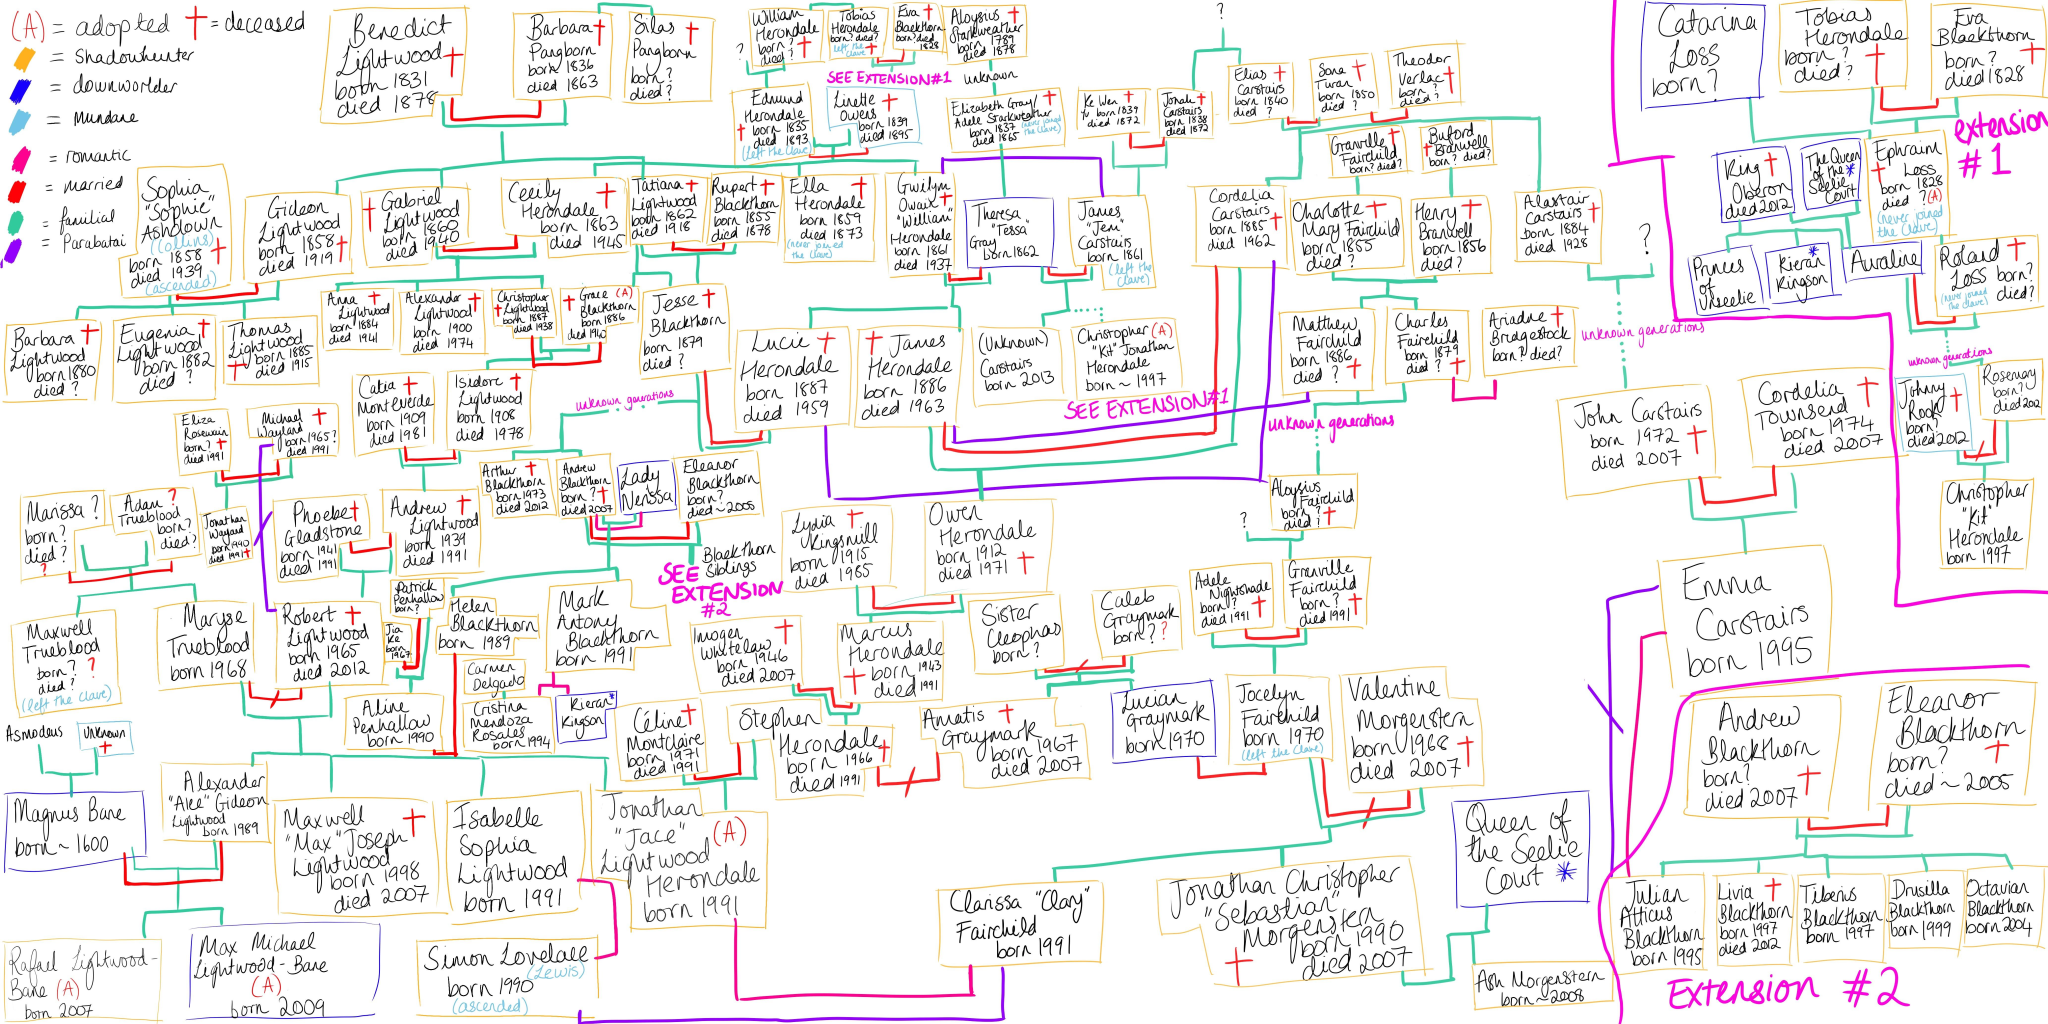 (A) = adopted † = deceased
= Shadowhunter
= downworlder
= Mundane
= romantic
= married
= familial
= Parabatai
Benedict
Lightwood
born 1831
died 1878
Barbara
Pangborn
born 1836
died 1863
Silas
Pangborn
born?
died?
William
Herondale
born?
died?
?
Tobias
Herondale
born? died?
left the
clave
Eva
Blackthorn
born? died
1828
SEE EXTENSION #1
Aloysius
Starkweather
born 1789
died 1878
unknown
Edmund
Herondale
born 1835
died 1893
(left the Clave)
Linette
Owens
born 1839
died 1895
Elizabeth Gray/
Adele Starkweather
born 1837
died 1865
(never joined
the Clave)
?
Ke Wen
Yu born 1839
died 1872
Jonah
Carstairs
born 1838
died 1872
Elias
Carstairs
born 1840
died ?
Sona
Turan
born 1850
died ?
Theodor
Verlac
born?
died?
Granville
Fairchild
born? died?
Buford
Branwell
born? died?
Sophia
"Sophie"
Ashdown
(Collins)
born 1858
died 1939
(ascended)
Gideon
Lightwood
born 1858
died 1919
Gabriel
Lightwood
born 1860
died 1940
Cecily
Herondale
born 1863
died 1945
Tatiana
Lightwood
born 1862
died 1918
Rupert
Blackthorn
born 1855
died 1878
Ella
Herondale
born 1859
died 1873
(never joined
the Clave)
Gwilym
Owain
"William"
Herondale
born 1861
died 1937
Theresa
"Tessa"
Gray
born 1862
James
"Jem"
Carstairs
born 1861
(left the
Clave)
Cordelia
Carstairs
born 1885
died 1962
Charlotte
Mary Fairchild
born 1855
died ?
Henry
Branwell
born 1856
died?
Alastair
Carstairs
born 1884
died 1928
?
unknown generations
Barbara
Lightwood
born 1880
died ?
Eugenia
Lightwood
born 1882
died ?
Thomas
Lightwood
born 1885
died 1915
Anna
Lightwood
born 1884
died 1941
Alexander
Lightwood
born 1900
died 1974
Christopher
Lightwood
born 1887
died 1938
Grace (A)
Blackthorn
born 1886
died 1940
Jesse
Blackthorn
born 1879
died ?
Lucie
Herondale
born 1887
died 1959
James
Herondale
born 1886
died 1963
(Unknown)
Carstairs
born 2013
Christopher (A)
"Kit" Jonathan
Herondale
born ~ 1997
SEE EXTENSION #1
Matthew
Fairchild
born 1886
died ?
Charles
Fairchild
born 1879
died ?
Ariadne
Bridgestock
born? died?
unknown generations
Catia
Monteverde
born 1909
died 1981
Isidore
Lightwood
born 1908
died 1978
unknown generations
Eliza
Rosewain
born?
died 1991
Michael
Wayland
born 1965?
died 1991
Arthur
Blackthorn
born 1973
died 2012
Andrew
Blackthorn
born ?
died 2007
Lady
Nerissa
Eleanor
Blackthorn
born?
died ~ 2005
Blackthorn
Siblings
SEE
EXTENSION
#2
Marissa ?
born?
died?
?
Adam ?
Trueblood
born?
died?
Jonathan
Wayland
born 1990
died 1991
Phoebe
Gladstone
born 1941
died 1991
Andrew
Lightwood
born 1939
died 1991
Lydia
Kingsmill
born 1915
died 1985
Owen
Herondale
born 1912
died 1971
Aloysius
Fairchild
born ?
died ?
?
Adele
Nightshade
born ?
died 1991
Granville
Fairchild
born ?
died 1991
John Carstairs
born 1972
died 2007
Cordelia
Townsend
born 1974
died 2007
Maxwell
Trueblood
born? ?
died?
(left the Clave)
Maryse
Trueblood
born 1968
Robert
Lightwood
born 1965
died 2012
Patrick
Penhallow
born?
Jia
Ke
born
1967
Helen
Blackthorn
born 1989
Mark
Antony
Blackthorn
born 1991
Aline
Penhallow
born 1990
Carmen
Delgado
Cristina
Mendoza
Rosales
born 1994
Kieran *
Kingson
Imogen
Whitelaw
born 1946
died 2007
Marcus
Herondale
born 1943
died 1991
Sister
Cleophas
born ?
Caleb
Graymark
born? ?
Céline
Montclaire
born 1971
died 1991
Stephen
Herondale
born 1966
died 1991
Amatis
Graymark
born 1967
died 2007
Lucian
Graymark
born 1970
Jocelyn
Fairchild
born 1970
(left the Clave)
Valentine
Morgenstern
born 1968
died 2007
Emma
Carstairs
born 1995
Asmodeus
Unknown
Magnus Bane
born ~ 1600
Alexander
"Alec" Gideon
Lightwood
born 1989
Maxwell
"Max" Joseph
Lightwood
born 1998
died 2007
Isabelle
Sophia
Lightwood
born 1991
Jonathan
"Jace" (A)
Lightwood
Herondale
born 1991
Rafael Lightwood-
Bane (A)
born 2007
Max Michael
Lightwood-Bane
(A)
born 2009
Simon Lovelace
(Lewis)
born 1990
(ascended)
Clarissa "Clary"
Fairchild
born 1991
Jonathan Christopher
"Sebastian"
Morgenstern
born 1990
died 2007
Queen of
the Seelie
Court *
Ash Morgenstern
born ~ 2008
Catarina
Loss
born?
Tobias
Herondale
born ?
died?
Eva
Blackthorn
born ?
died 1828
extension
#1
King
Oberon
died 2012
The Queen
of the *
Seelie
Court
Ephraim
Loss
born 1828
died ?(A)
(never joined
the Clave)
Princes
of
Unseelie
Kieran *
Kingson
Auraline
Roland
Loss born?
(never joined
the Clave) died?
unknown generations
Johnny
Rook
born?
died 2012
Rosemary
born?
died 2012
Christopher
"Kit"
Herondale
born 1997
Andrew
Blackthorn
born?
died 2007
Eleanor
Blackthorn
born?
died ~ 2005
Julian
Atticus
Blackthorn
born 1995
Livia
Blackthorn
born 1997
died 2012
Tiberius
Blackthorn
born 1997
Drusilla
Blackthorn
born 1999
Octavian
Blackthorn
born 2004
Extension #2